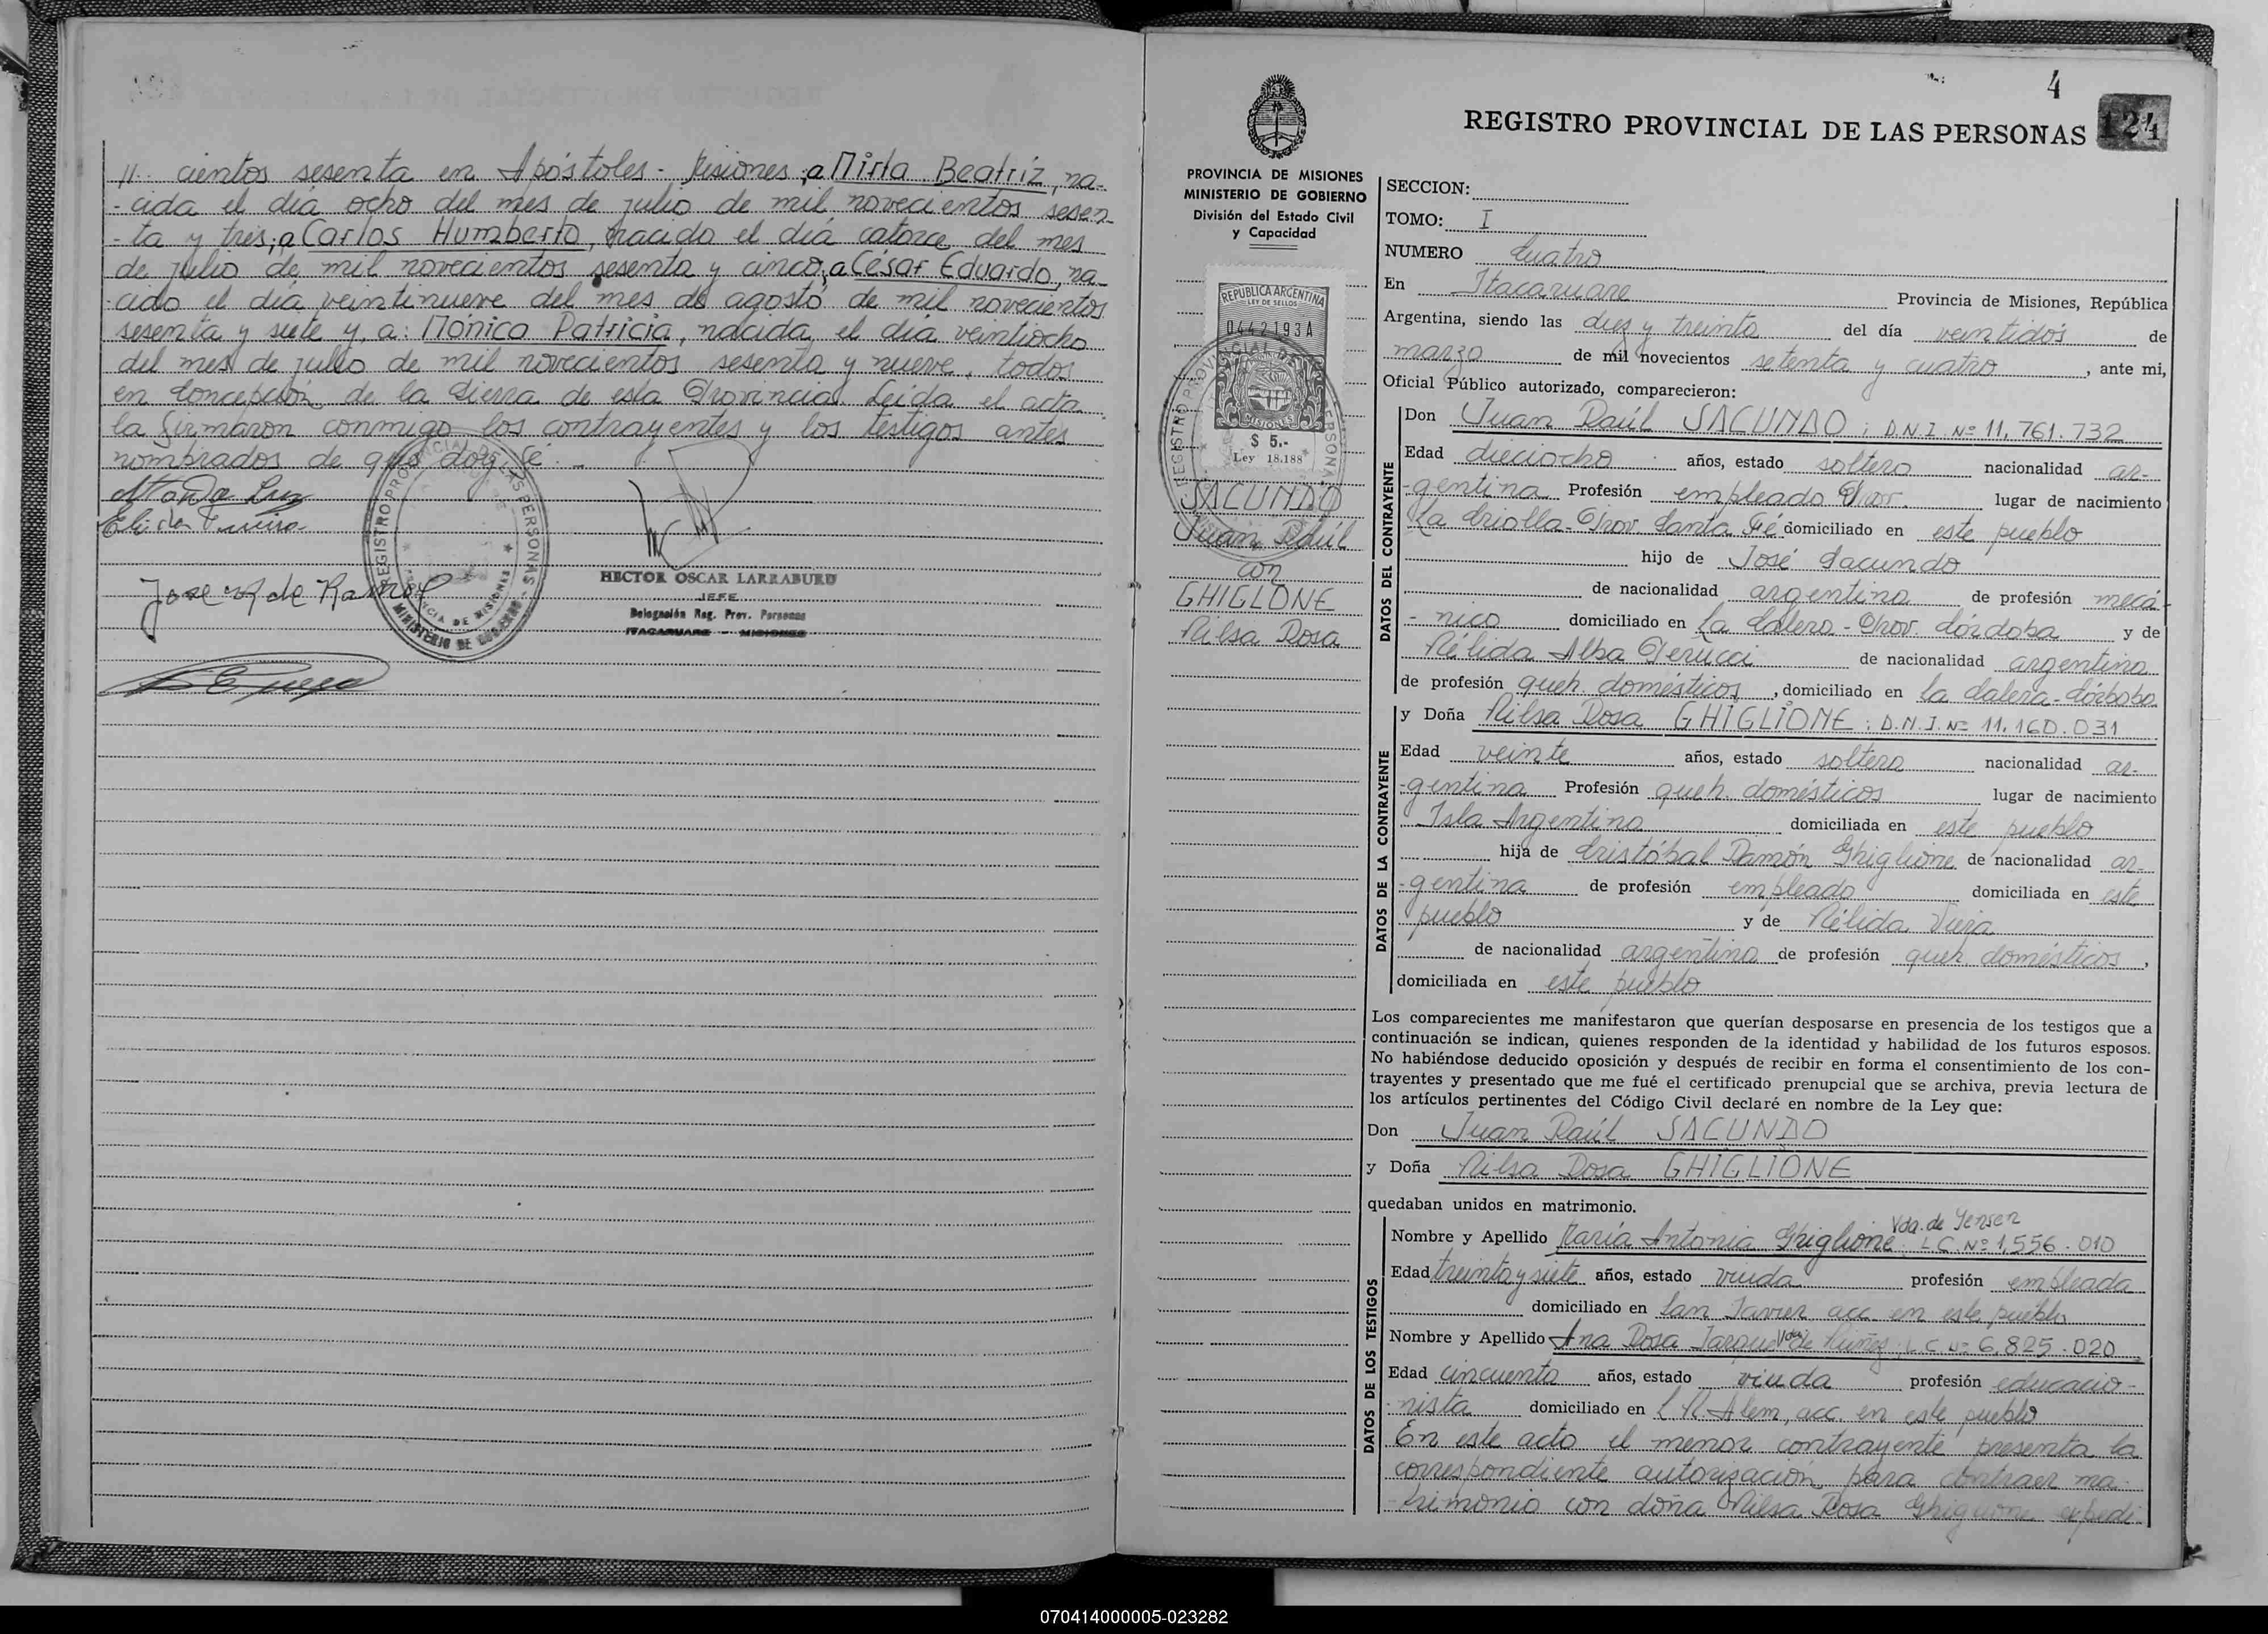 //- cientos sesenta en Apóstoles - Misiones; a Mirta Beatriz, na-
- cida el día ocho del mes de julio de mil novecientos sesen-
- ta y tres; a Carlos Humberto, nacido el día catorce del mes
de julio de mil novecientos sesenta y cinco; a César Eduardo, na-
- cido el día veintinueve del mes de agosto de mil novecientos
sesenta y siete y a: Mónica Patricia, nacida el día veintiocho
del mes de julio de mil novecientos sesenta y nueve, todos
en Concepción de la Sierra de esta Provincia. Leída el acta
la firmaron conmigo los contrayentes y los testigos antes
nombrados de que doy fé.-
REGISTRO PROVINCIAL DE LAS PERSONAS
PROVINCIA DE MISIONES
MINISTERIO DE GOBIERNO
HECTOR OSCAR LARRABURU
JEFE
Delegación Reg. Prov. Personas
ITACARUARE - MISIONES
4
REGISTRO PROVINCIAL DE LAS PERSONAS 124
PROVINCIA DE MISIONES
MINISTERIO DE GOBIERNO
División del Estado Civil
y Capacidad
REPUBLICA ARGENTINA
LEY DE SELLOS
0442193A
MISIONES
$ 5.-
Ley 18.188
SACUNDO
Juan Raúl
con
GHIGLIONE
Nilsa Rosa
SECCION:
TOMO: I
NUMERO Cuatro
En Itacaruare Provincia de Misiones, República
Argentina, siendo las diez y treinta del día veintidós de
marzo de mil novecientos setenta y cuatro, ante mi,
Oficial Público autorizado, comparecieron:
DATOS DEL CONTRAYENTE
Don Juan Raúl SACUNDO; D.N.I. Nº 11.761.732
Edad dieciocho años, estado soltero nacionalidad ar-
- gentina Profesión empleado Prov. lugar de nacimiento
La Criolla - Prov. Santa Fé domiciliado en este pueblo
hijo de José Sacundo
de nacionalidad argentina de profesión mecá-
- nico domiciliado en La Calera - Prov. Córdoba y de
Nélida Alba Perucci de nacionalidad argentina
de profesión queh. domésticos, domiciliado en La Calera - Córdoba
DATOS DE LA CONTRAYENTE
y Doña Nilsa Rosa GHIGLIONE; D.N.I. Nº 11.160.031
Edad veinte años, estado soltera nacionalidad ar-
- gentina Profesión queh. domésticos lugar de nacimiento
Isla Argentina domiciliada en este pueblo
hija de Cristóbal Ramón Ghiglione de nacionalidad ar-
- gentina de profesión empleado domiciliada en este
pueblo y de Nélida Viera
de nacionalidad argentina de profesión queh. domésticos,
domiciliada en este pueblo
Los comparecientes me manifestaron que querían desposarse en presencia de los testigos que a
continuación se indican, quienes responden de la identidad y habilidad de los futuros esposos.
No habiéndose deducido oposición y después de recibir en forma el consentimiento de los con-
trayentes y presentado que me fué el certificado prenupcial que se archiva, previa lectura de
los artículos pertinentes del Código Civil declaré en nombre de la Ley que:
Don Juan Raúl SACUNDO
y Doña Nilsa Rosa GHIGLIONE
quedaban unidos en matrimonio.
DATOS DE LOS TESTIGOS
Vda. de Jensen
Nombre y Apellido María Antonia Ghiglione; L.C. Nº 1.556.010
Edad treinta y siete años, estado viuda profesión empleada
domiciliado en San Javier acc. en este pueblo
Nombre y Apellido Ana Rosa Vda. de Núñez L.C. Nº 6.825.020
Edad cincuenta años, estado viuda profesión educacio-
- nista domiciliado en L.N. Alem, acc. en este pueblo
En este acto el menor contrayente presenta la
correspondiente autorización para contraer ma-
- trimonio con doña Nilsa Rosa Ghiglione expedi-
070414000005-023282